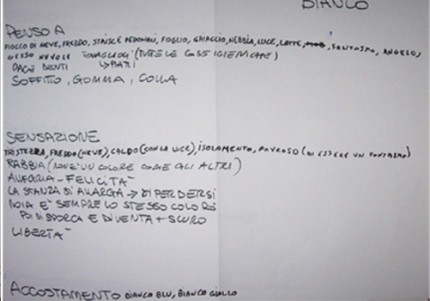 BIANCO
PENSO A
FIOCCO DI NEVE, FREDDO, STRISCE PEDONALI, FOGLIO, GHIACCIO, NEBBIA, LUCE, LATTE, FANTASMA, ANGELO,
GESSO NUVOLE TOVAGLIOLI (TUTTE LE COSE IGIENICHE)
PACE DENTI → PIATTI
SOFFITTO, GOMMA, COLLA
SENSAZIONE
TRISTEZZA, FREDDO (NEVE), CALDO (CON LA LUCE), ISOLAMENTO, PAUROSO (DI ESSERE UN FANTASMA)
RABBIA (NON È UN COLORE COME GLI ALTRI)
ALLEGRIA - FELICITÀ
LA STANZA SI ALLARGA → DI PERDERSI
NOIA È SEMPRE LO STESSO COLORE
POI SI SPORCA E DIVENTA + SCURO
LIBERTÀ
ACCOSTAMENTO BIANCO BLU, BIANCO GIALLO